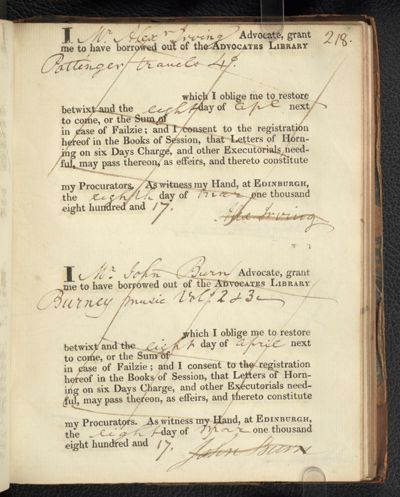 218.
I Mr. Alexr Irving Advocate, grant
me to have borrowed out of the ADVOCATES LIBRARY
Pottinger travels 4o.
which I oblige me to restore
betwixt and the eight day of Apl next
to come, or the Sum of
in case of Failzie; and I consent to the registration
hereof in the Books of Session, that Letters of Horn-
ing on six Days Charge, and other Executorials need-
ful, may pass thereon, as effeirs, and thereto constitute
my Procurators. As witness my Hand, at EDINBURGH,
the eighth day of Mar one thousand
eight hundred and 17.
Alex Irving
I Mr. John Burn Advocate, grant
me to have borrowed out of the ADVOCATES LIBRARY
Burney music Vol. 2 & 3
which I oblige me to restore
betwixt and the eight day of April next
to come, or the Sum of
in case of Failzie; and I consent to the registration
hereof in the Books of Session, that Letters of Horn-
ing on six Days Charge, and other Executorials need-
ful, may pass thereon, as effeirs, and thereto constitute
my Procurators. As witness my Hand, at EDINBURGH,
the eight day of Mar one thousand
eight hundred and 17.
John Burn